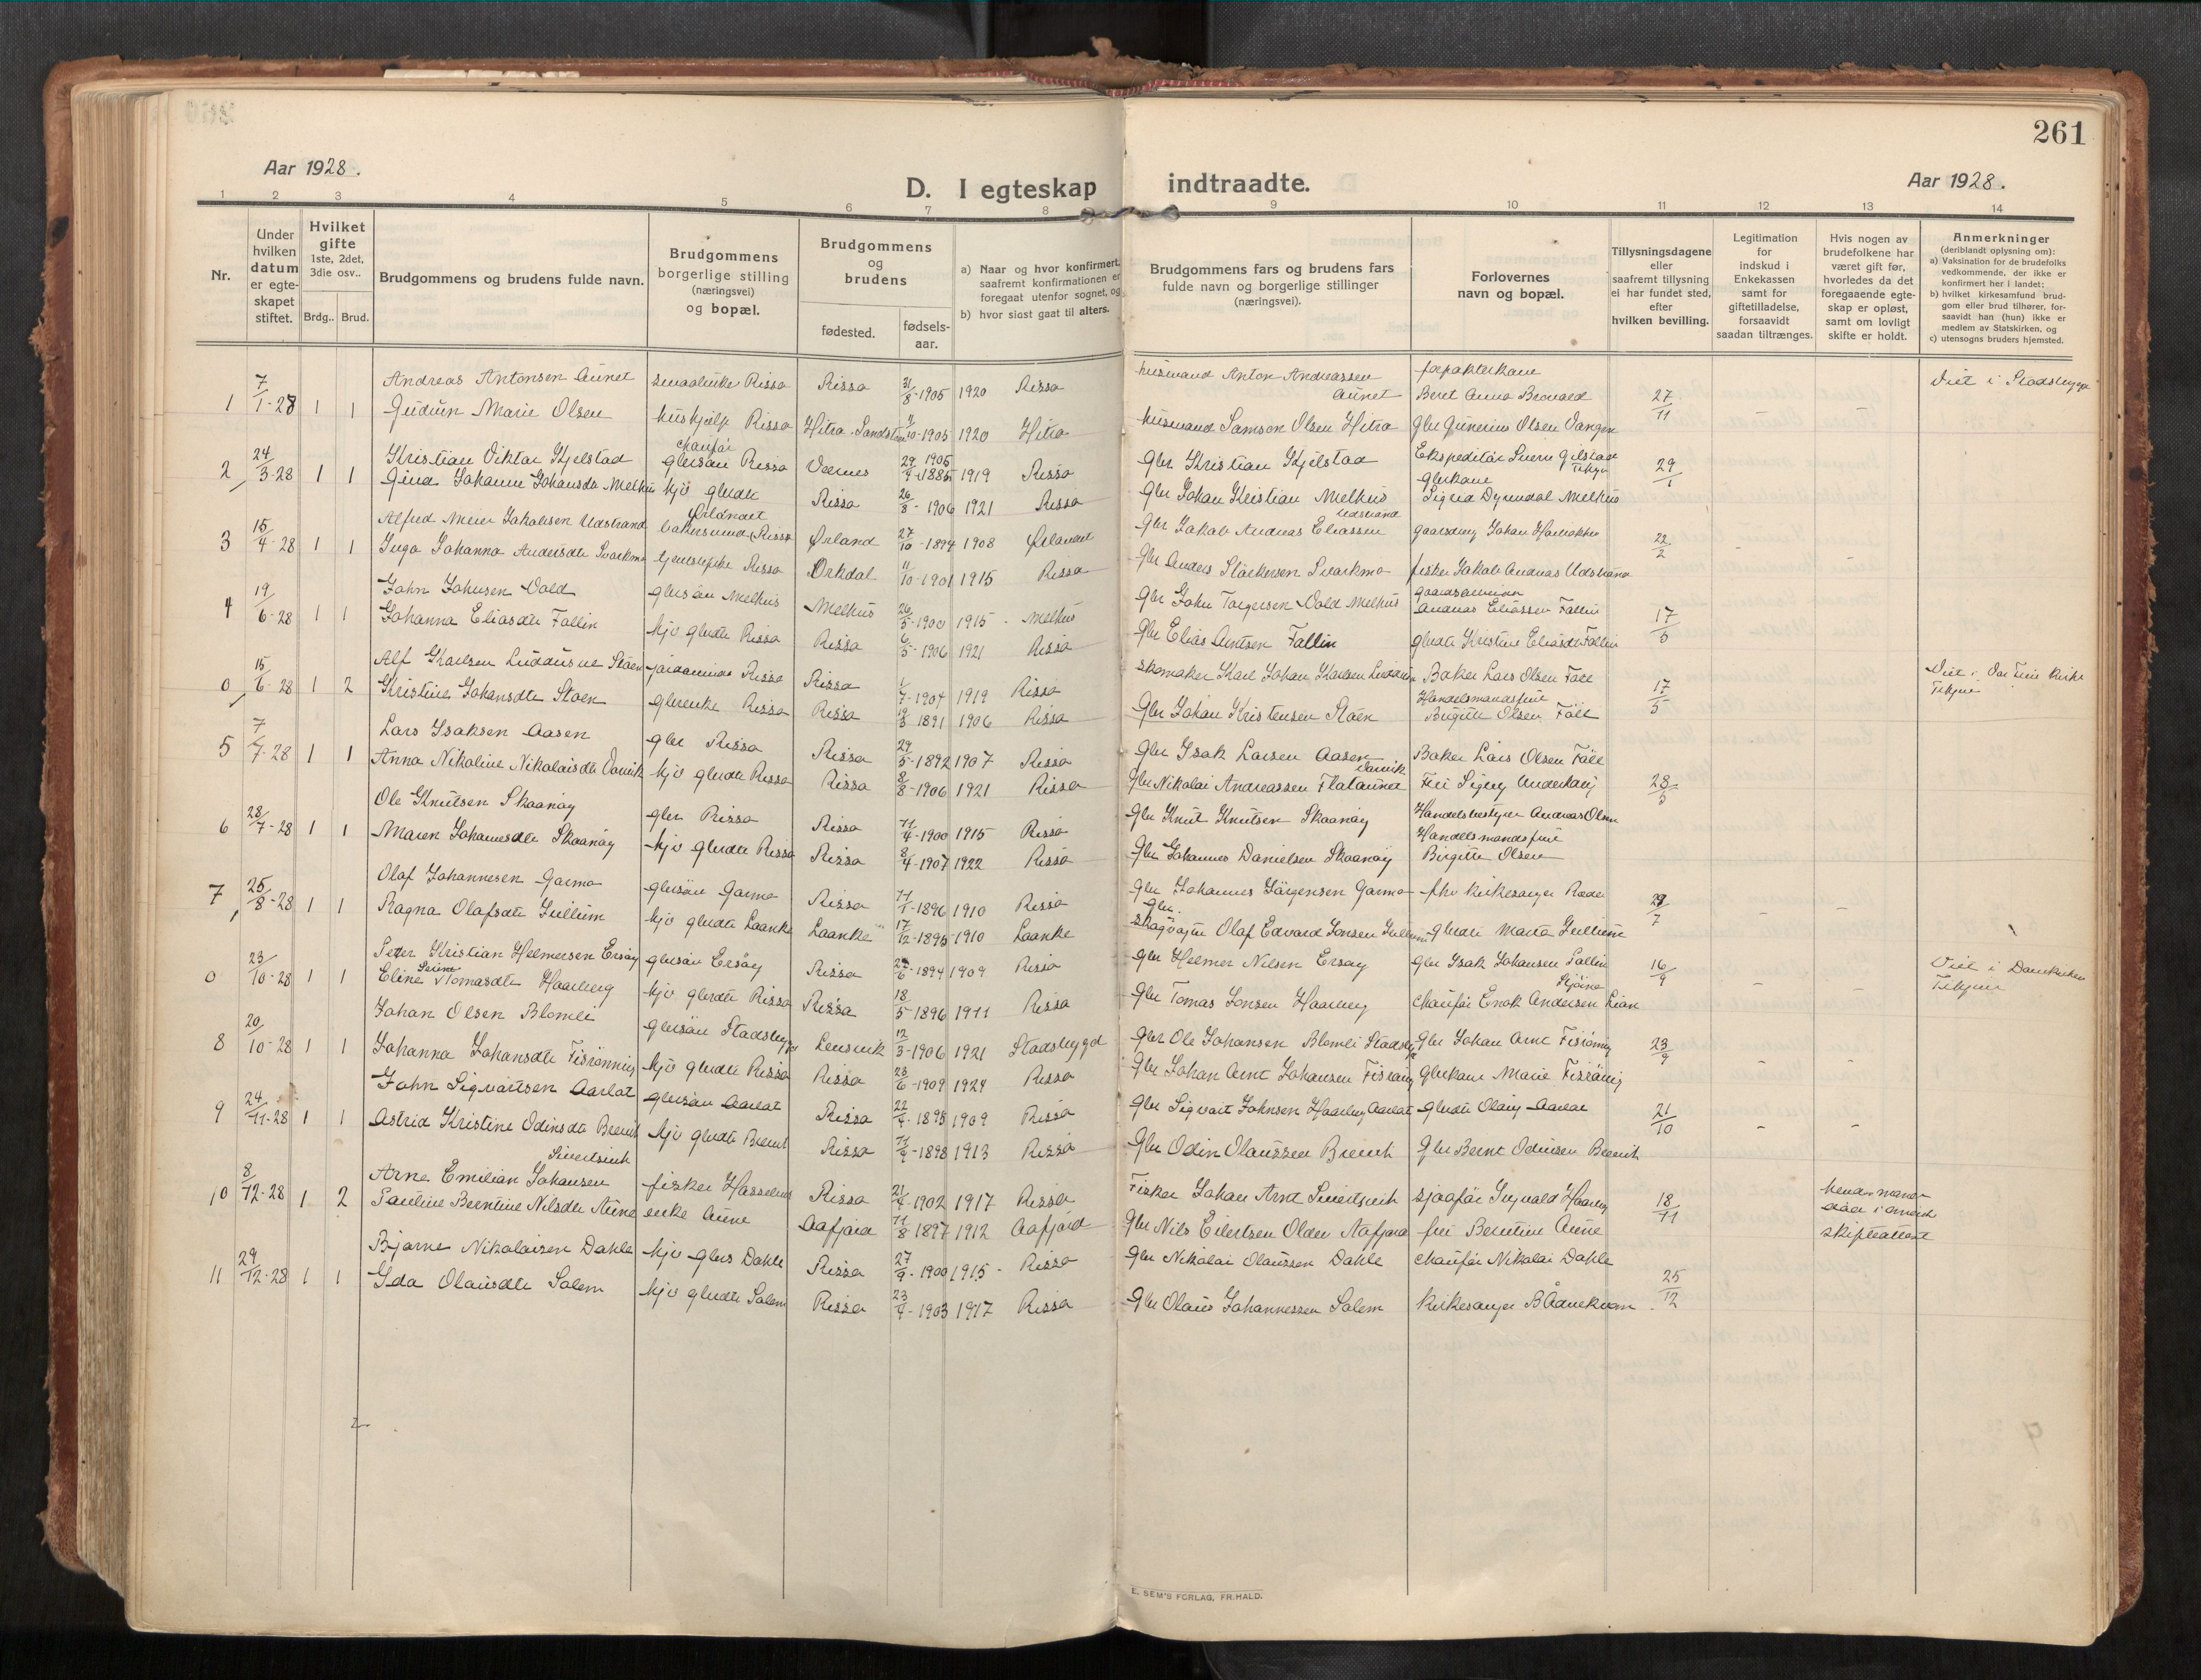 261
Aar 1928.
D. I egteskap indtraadte.
Aar 1928.
1 2 3 4 5 6 7 8 9 10 11 12 13 14
Nr.
Under hvilken datum er egteskapet stiftet.
Hvilket gifte 1ste, 2det, 3die osv..
Brdg.. Brud.
Brudgommens og brudens fulde navn.
Brudgommens borgerlige stilling (næringsvei) og bopæl.
Brudgommens og brudens
fødested.
fødsels-aar.
a) Naar og hvor konfirmert, saafremt konfirmationen er foregaat utenfor sognet, og
b) hvor sidst gaat til alters.
Brudgommens fars og brudens fars fulde navn og borgerlige stillinger (næringsvei).
Forlovernes navn og bopæl.
Tillysningsdagene eller saafremt tillysning ei har fundet sted, efter hvilken bevilling.
Legitimation for indskud i Enkekassen samt for giftetilladelse, forsaavidt saadan tiltrænges.
Hvis nogen av brudefolkene har været gift før, hvorledes da det foregaaende egteskap er opløst, samt om lovligt skifte er holdt.
Anmerkninger (deriblandt oplysning om):
a) Vaksination for de brudefolks vedkommende, der ikke er konfirmert her i landet;
b) hvilket kirkesamfund brudgom eller brud tilhører, forsaavidt han (hun) ikke er medlem av Statskirken, og
c) utensogns bruders hjemsted.
1 7/1-28 1 1 Andreas Antonsen Aunet Rissa Rissa 31/8-1905 1920 Rissa husmand Anton Andreassen Aunet Beret Anna 27/11 Viet i Stadsbygd
Gudrun Marie Olsen hushjelp Rissa Hitra 11/10-1905 1920 Hitra husmand Samson Olsen Hitra Gbr Gunerius Olsen Vangen
2 24/3-28 1 1 Kristian Viktor Kjelstad chauffør gbrsøn Rissa Værnes 29/9 1905 1885 1919 Rissa Gbr Kristian Kjelstad Ekspeditør 29/1
Gina Johanne Johansdtr Melhus hjv gbrdtr Rissa 26/8-1906 1921 Rissa Gbr Johan Kristian Melhus gbrkone Sigrid Dyrendal Melhus
3 15/4-28 1 1 Alfred Meier Jakobsen Udstrand Ørlandet Rissa Ørland 27/10-1894 1908 Ørlandet Gbr Jakob Andreas Eliassen Udstrand Johan 22/2
Inga Johanna Andersdtr Svarkmo tjenestepike Rissa Orkdal 11/10-1901 1915 Rissa Gbr Anders Svarkmo fisker Jakob Andreas Udstrand
4 19/6-28 1 1 John Johnsen Vold gbrsøn Melhus Melhus 26/5-1900 1915 - Melhus Gbr John Torgersen Vold Melhus Andreas Eliassen Fallin 17/5
Johanna Eliasdtr Fallin hjv gbrdtr Rissa Rissa 6/5-1906 1921 Rissa Gbr Elias Antsen Fallin gbrdtr Kristine Eliasdtr Fallin
0 15/6-28 1 2 Alf Karlsen Rissa Rissa 1/7-1904 1919 Rissa skomaker Karl Johan Karlsen Baker Lars Olsen Føll 17/5 Viet i Vor Frue Kirke Trhjem
Kristine Johansdtr Støen gbrenke Rissa Rissa 19/3 1891 1906 Rissa Gbr Johan Kristensen Støen Handelsmandsfrue Birgitte Olsen Føll
5 7/7-28 1 1 Lars Isaksen Aasen gbr Rissa Rissa 29/5-1892 1907 Rissa Gbr Isak Larsen Aasen Baker Lars Olsen Føll
Anna Nikoline Nikolaisdtr Darvik hjv gbrdtr Rissa Rissa 8/8-1906 1921 Rissa Gbr Nikolai Andreassen Flataunet Darvik 28/5
6 28/7-28 1 1 Ole Knutsen Skaanøy gbr Rissa Rissa 11/4-1900 1915 Rissa Gbr Knut Knutsen Skaanøy Handelsbestyrer Andreas Olsen
Maren Johannesdtr Skaanøy hjv gbrdtr Rissa Rissa 8/4-1907 1922 Rissa Gbr Johannes Danielsen Skaanøy Handelsmandsfrue Birgitte Olsen
7 25/8-28 1 1 Olaf Johannesen Garmo gbrsøn Garmo Rissa 11/1-1896 1910 Rissa Gbr Johannes Jørgensen Garmo fhv kirkesanger Røder 29/7
Ragna Olafsdtr Gullum hjv gbrdtr Laanke Laanke 17/12-1895 1910 Laanke Gbr. skogvogter Olaf Edvard Jonsen Gullum gbrdtr Marta Gullum
0 23/10-28 1 1 Petter Kristian Helmersen Ersøy gbrsøn Ersøy Rissa 27/6-1894 1909 Rissa gbr Helmer Nilsen Ersøy gbr Isak Johansen Fallin 16/9 Viet i Domkirken Trhjem
Eline Tomasdtr Haarberg hjv gbrdtr Rissa Rissa 18/5-1896 1911 Rissa Gbr Tomas Jonsen Haarberg chaufør Enok Andersen Lian
8 20/10-28 1 1 Johan Olsen Blomli gbrsøn Stadsbygd Lensvik 12/3-1906 1921 Stadsbygd Gbr Ole Johansen Blomli Stadsbygd Gbr Johan Arnt 23/9
Johanna Johansdtr hjv gbrdtr Rissa Rissa 23/6-1909 1924 Rissa Gbr Johan Arnt Johansen gbrkone Marie
9 24/11-28 1 1 John Sigvartsen Aarlat gbrsøn Aarlat Rissa 22/4-1895 1909 Rissa Gbr Sigvart Johnsen Haarberg Aarlat gbrdtr Olaug Aarlat 21/10
Astrid Kristine Odinsdtr hjv gbrdtr Rissa 11/9-1898 1913 Rissa Gbr Odin Olaussen Gbr Bernt Odinsen
10 8/12-28 1 2 Arne Emilian Johansen Sivertsvik fisker Rissa 21/4-1902 1917 Rissa Fisker Johan Arnt Sivertsvik sjaafør 18/11 hendes mand
Pauline Berntine Nilsdtr Aune enke Aune Aafjord 11/8 1897 1912 Aafjord Gbr Nils Eilertsen Olden Aafjord fru Berntine Aune skifteattest
11 29/12-28 1 1 Bjarne Nikolaisen Dahle hjv gbrs Dahle Rissa 27/9-1900 1915 - Rissa Gbr Nikolai Olaussen Dahle chaufør Nikolai Dahle 25/12
Ida Olausdtr Salem hjv gbrdtr Salem Rissa 23/4-1903 1917 Rissa Gbr Olaus Johannessen Salem Kirkesanger B Ådnekvam
E. SEM'S FORLAG, FR.HALD.